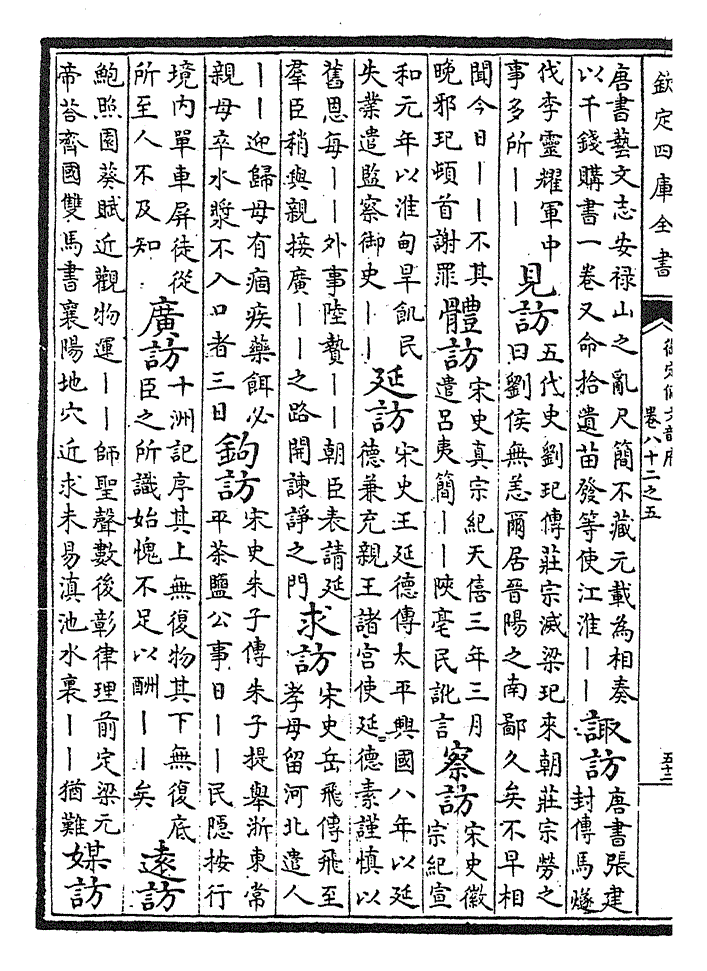 欽定四庫全書
御定佩文韻府
卷八十二之五
五十二
唐書藝文志安禄山之亂尺簡不藏元載為相奏
以千錢購書一卷又命拾遺苗發等使江淮丨丨
諏訪
唐書張建
封傳馬燧
伐李靈耀軍中
事多所丨丨
見訪
五代史劉玘傳莊宗滅梁玘來朝莊宗勞之
曰劉侯無恙爾居晉陽之南鄙久矣不早相
聞今日丨丨不其
晚邪玘頓首謝罪
體訪
宋史真宗紀天僖三年三月
遣呂夷簡丨丨陜亳民訛言
察訪
宋史徽
宗紀宣
和元年以淮甸旱飢民
失業遣監察御史丨丨
延訪
宋史王延德傳太平興國八年以延
德兼充親王諸宫使延德素謹慎以
舊恩每丨丨外事陸贄丨丨朝臣表請延
羣臣稍與親接廣丨丨之路開諫諍之門
求訪
宋史岳飛傳飛至
孝母留河北遣人
丨丨迎歸母有痼疾藥餌必
親母卒水漿不入口者三日
鉤訪
宋史朱子傳朱子提舉浙東常
平茶鹽公事日丨丨民隠按行
境内單車屏徒從
所至人不及知
廣訪
十洲記序其上無復物其下無復底
臣之所識始愧不足以酬丨丨矣
逺訪
鮑照園葵賦近觀物運丨丨師聖聲數後彰律理前定梁元
帝荅齊國雙馬書襄陽地穴近求未易滇池水裏丨丨猶難
媒訪